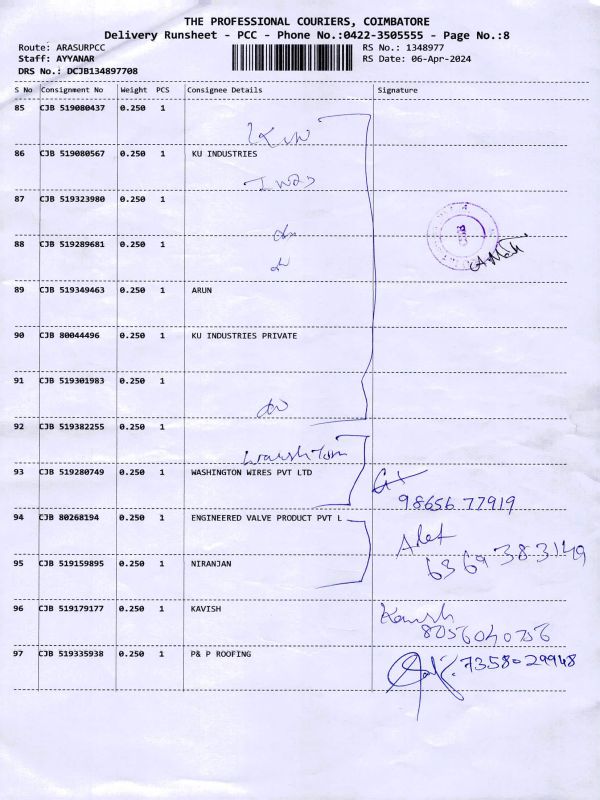 THE PROFESSIONAL COURIERS, COIMBATORE
Delivery Runsheet - PCC - Phone No.:0422-3505555 - Page No.:8
Route: ARASURPCC RS No.: 1348977
Staff: AYYANAR RS Date: 06-Apr-2024
DRS No.: DCJB134897708
S No Consignment No Weight PCS Consignee Details Signature
85 CJB 519080437 0.250 1
86 CJB 519080567 0.250 1 KU INDUSTRIES
87 CJB 519323980 0.250 1
88 CJB 519289681 0.250 1
89 CJB 519349463 0.250 1 ARUN
90 CJB 80044496 0.250 1 KU INDUSTRIES PRIVATE
91 CJB 519301983 0.250 1
92 CJB 519382255 0.250 1
93 CJB 519280749 0.250 1 WASHINGTON WIRES PVT LTD
98656 77919
94 CJB 80268194 0.250 1 ENGINEERED VALVE PRODUCT PVT L
6369 383149
95 CJB 519159895 0.250 1 NIRANJAN
96 CJB 519179177 0.250 1 KAVISH
8056040756
97 CJB 519335938 0.250 1 P& P ROOFING 73580 29948